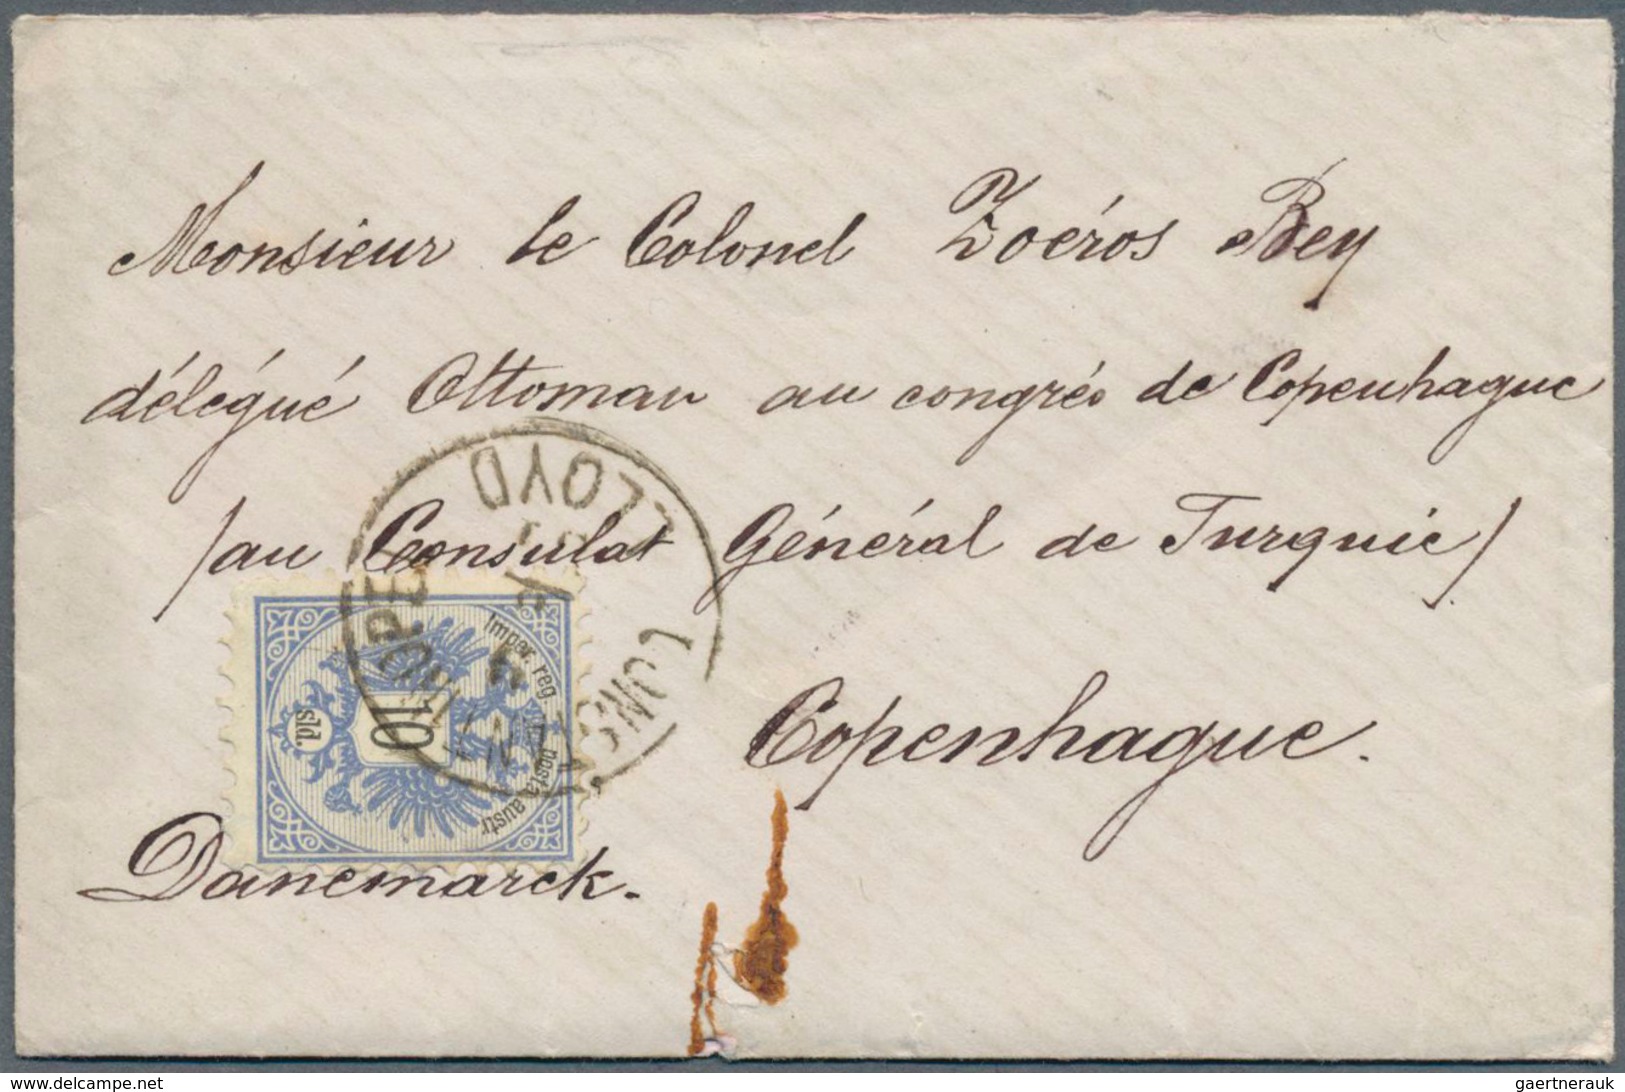 Monsieur le Colonel Zoéros Bey
délégué Ottoman au congrés de Copenhague
/au Consulat Général de Turquie/
Copenhague.
Danemarck.
LLOYD
10
sld.
Imper. reg. posta austr
delcampe.net
gaertnerauk